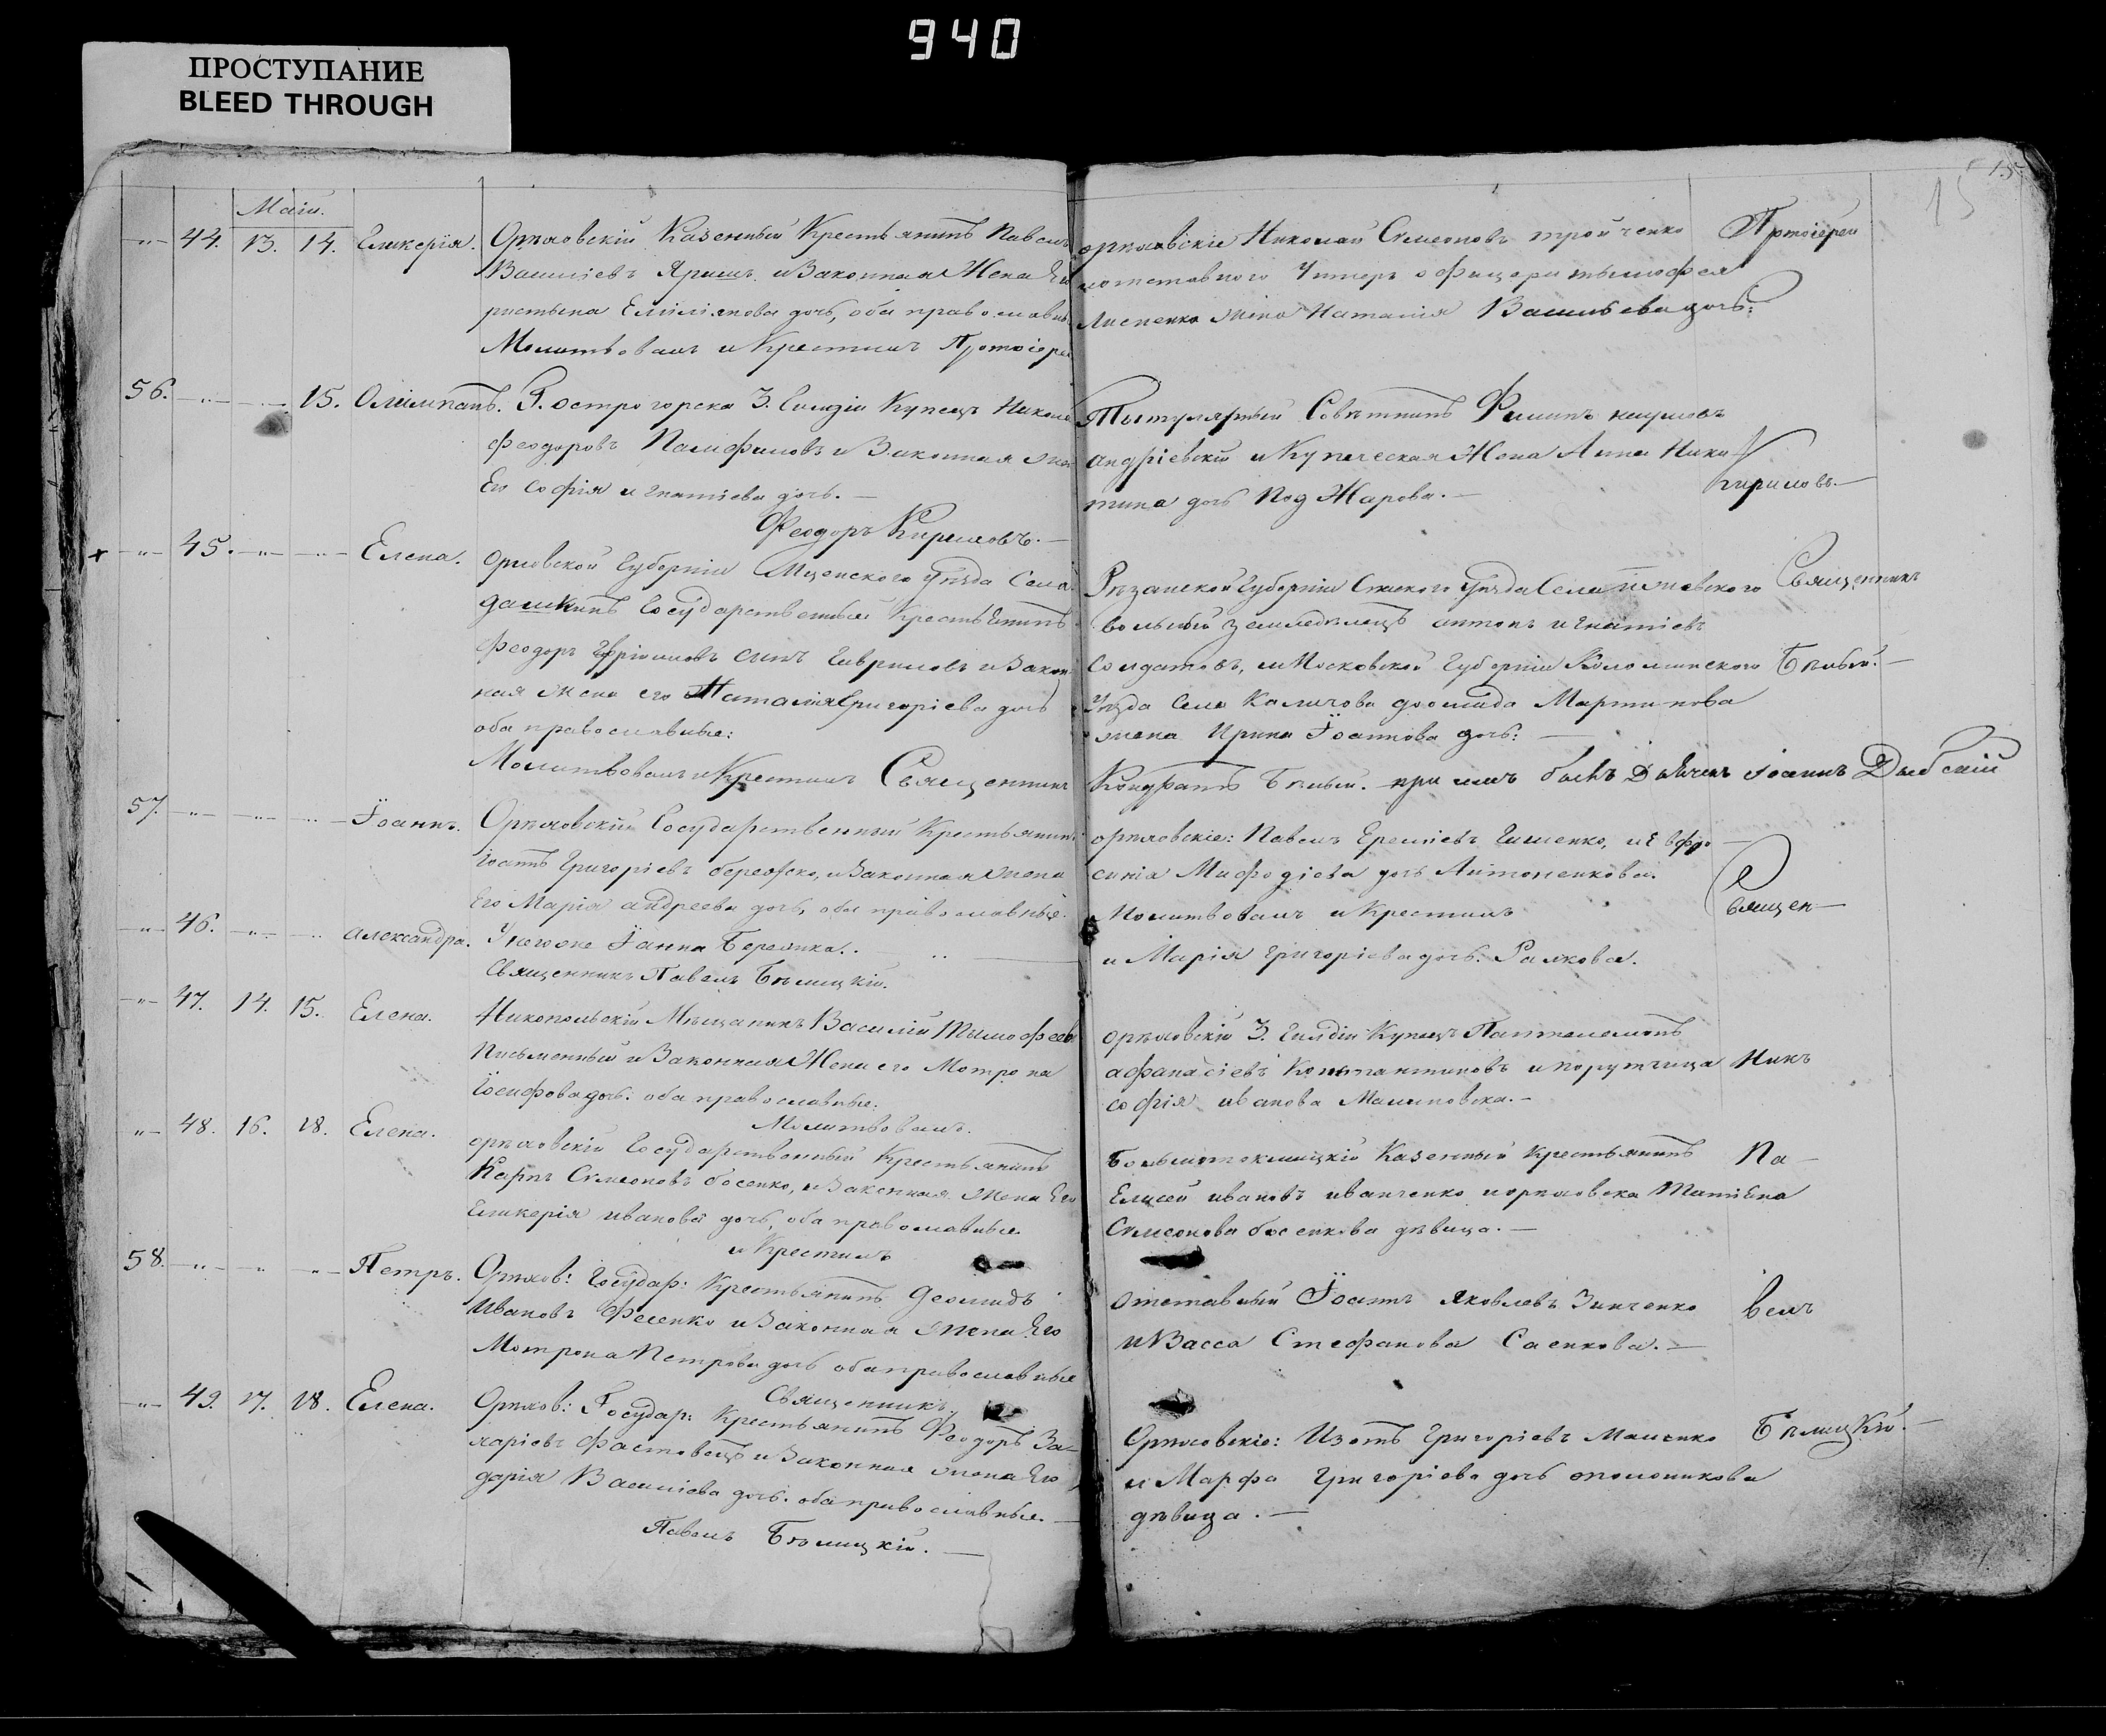 940
ПРОСТУПАНИЕ
BLEED THROUGH
15
Маій.
44. 13. 14. Гликерія. Орѣховскій Казенный Крестьянинъ Павелъ
Василіевъ Яришъ и Законная Жена Его
Емиліянова дочь, оба православн.
Молитвовалъ и Крестилъ Протоіерей
орѣховскіе Николай Симеоновъ тройченко Протоіерей
отставного Унтеръ офицера тымофея
Лисненка жена Наталія Васильева дочь:
56. 15. Олимпанъ. Г. острогорска 3. Гилдіи Купецъ Николай
Феодоровъ Памфиловъ и Законная жена
Его Софія игнатіева дочь.
Феодоръ Кириловъ.
Тытулярный Совѣтникъ Филипъ наумовъ
андріевскій и Купеческая Жена Анна Ники
тина дочь Под Жарова.
Кириловъ.
45. Елена. орловской Губерніи Мценского Уѣзда Села
дашкинъ Государственный Крестьянинъ
Феодоръ сынъ Гавриловъ и Закон
ная жена его Наталія Григоріева дочь
оба православные:
Молитвовалъ и Крестилъ Священникъ
Рѣзанской Губерніи Уѣзда Села Священникъ
вольный земледѣлецъ антонъ игнатіевъ
Солдатовъ, и Московской Губерніи Коломинского Бѣлый.
Уѣзда Села Каличова Мартинова
жена Ирина Іоаннова дочь:
Кондратъ Бѣлый. при немъ былъ Дьячекъ Іоаннъ Дыбскій
57. Іоаннъ. Орѣховскій Государственный Крестьянинъ
Іоаннъ Григоріевъ бережко, и Законная жена
Его Марія андреева дочь, оба православные.
орѣховскіе: Павелъ Ереміевъ Гименко, и Евфро
синія Мифодіева дочь Антоненкова.
Молитвовалъ и Крестилъ
Священ
46. александра. У него же Іанна Бережка.
Священникъ Павелъ Бѣлицкій.
и Марія Григоріева дочь. Ралкова.
47. 14. 15. Елена. Никопольскій Мѣщанинъ Василій Тымофеевъ
Письменный и Законная Жена его Мотрона
Іосифова дочь. оба православные:
Молитвовалъ.
орѣховскій 3. Гилдіи Купецъ Пантелемонъ
афанасіевъ Константиновъ и порутчица Никъ
софія иванова Малиновска.
48. 16. 18. Елена. орѣховскій Государственный Крестьянинъ
Карпъ Симеоновъ босенко, и Законная жена Его
Гликерія иванова дочь, оба православные
и Крестилъ
Большетокмацкій Казенный Крестьянинъ Па
Елисей ивановъ иванченко и орѣховска Татіена
Симеонова босенкова дѣвица.
58. Петръ. Орѣхов: Государ: Крестьянинъ Деомидъ
Ивановъ Фесенко и Законная жена Его
Мотрона Петрова дочь оба православные
Священникъ
отставный Іоаннъ Яковлевъ Зинченко велъ
и Васса Стефанова Саенкова.
49. 17. 18. Елена. Орѣхов: Государ: Крестьянинъ Феодоръ За
харіевъ Фастовецъ и Законная жена Его
дарія Василіева дочь. оба православные.
Павелъ Бѣлицкій.
Орѣховскіе: Изотъ Григоріевъ Маленко Бѣлицкій.
и Марфа Григоріева дочь ополоникова
дѣвица.